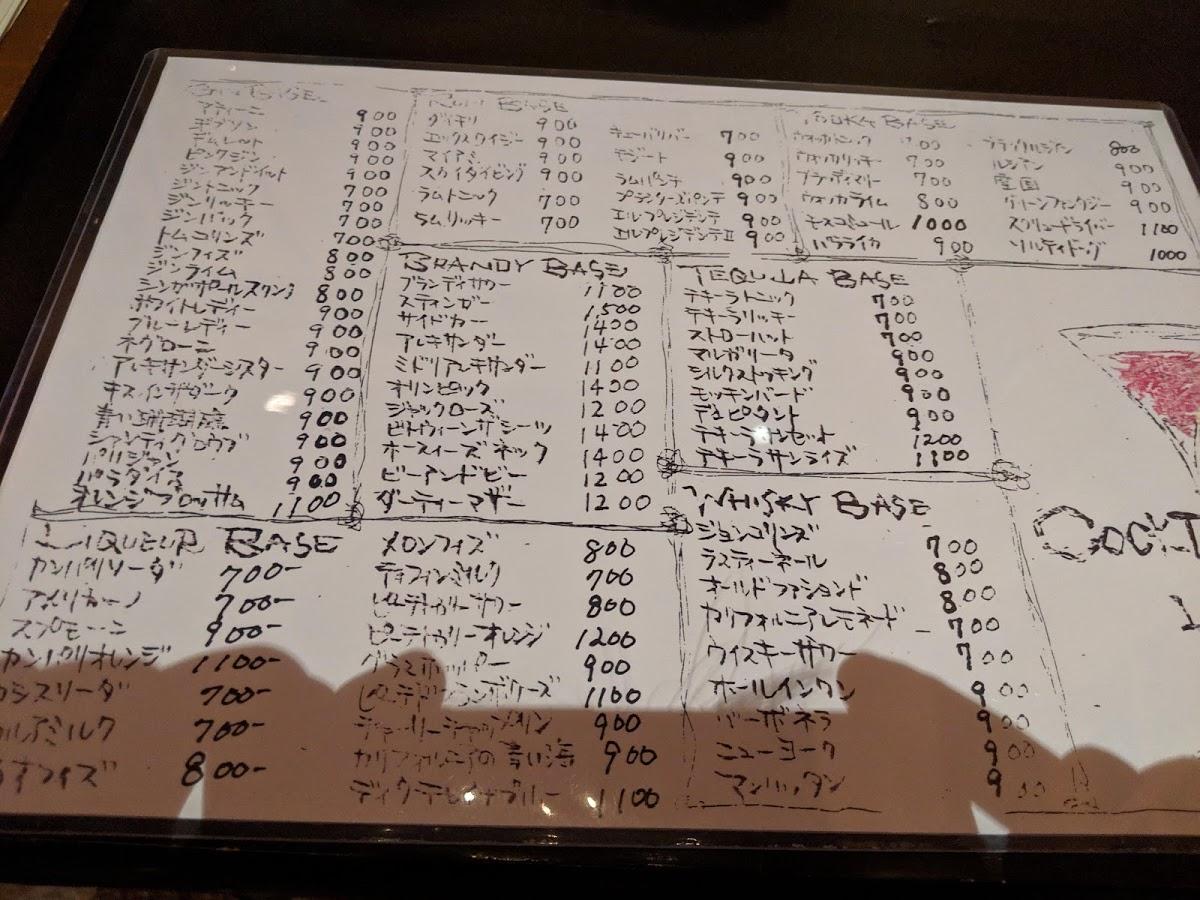 BASE
マティーニ 900
ギブソン 900
ギムレット 900
ピンクジン 900
ジンアンドイット 900
ジントニック 700
ジンリッキー 700
ジンバック 700
トムコリンズ 700
ジンフィズ 800
ジンライム 800
シンガポールスリング 800
ホワイトレディー 900
ブルーレディー 900
ネグローニ 900
アレキサンダーシスター 900
キスインザダーク 900
青い珊瑚礁 900
シャンティクロウブ 900
パリジャン 900
パラダイス 900
オレンジブロッサム 1100
RUM BASE
ダイキリ 900
エックスワイジー 900
マイアミ 900
スカイダイビング 900
ラムトニック 700
ラムリッキー 700
キューバリバー 700
モジート 900
ラムパンチ 900
プランターズパンチ 900
エルプレジデンテ 900
エルプレジデンテII 900
VODKA BASE
ウォッカトニック 700
ウォッカリッキー 700
ブラディマリー 700
ウォッカライム 800
モスコミュール 1000
バラライカ 900
ブラックルシアン 800
ルシアン 900
雪国 900
グリーンファンタジー 900
スクリュードライバー 1100
ソルティドッグ 1000
BRANDY BASE
ブランディサワー 1100
スティンガー 1,500
サイドカー 1400
アレキサンダー 1400
ミドリアレキサンダー 1100
オリンピック 1400
ジャックローズ 1200
ビトウィーンザシーツ 1400
ホースィーズネック 1400
ビーアンドビー 1200
ダーティーマザー 1200
TEQUILA BASE
テキーラトニック 700
テキーラリッキー 700
ストローハット 700
マルガリータ 900
シルクストッキング 900
モッキンバード 900
デュピタント 900
テキーラサンセット 1200
テキーラサンライズ 1100
WHISKY BASE
ジョンコリンズ 700
ラスティーネール 800
オールドファションド 800
カリフォルニアレモネード 700
ウイスキーサワー 700
ホールインワン 900
バーボネラ 900
ニューヨーク 900
マンハッタン 900
LIQUEUR BASE
カンパリソーダ 700-
アメリカーノ 700-
スプモーニ 900-
カンパリオレンジ 1100-
カシスソーダ 700-
カルアミルク 700-
フィズ 800-
メロンフィズ 800
ティフィンミルク 700
ピーチツリーサワー 800
ピーチツリーオレンジ 1200
グラスホッパー 900
1100
チャーリーチャップリン 900
カリフォルニアの青い海 900
1100
COCKT